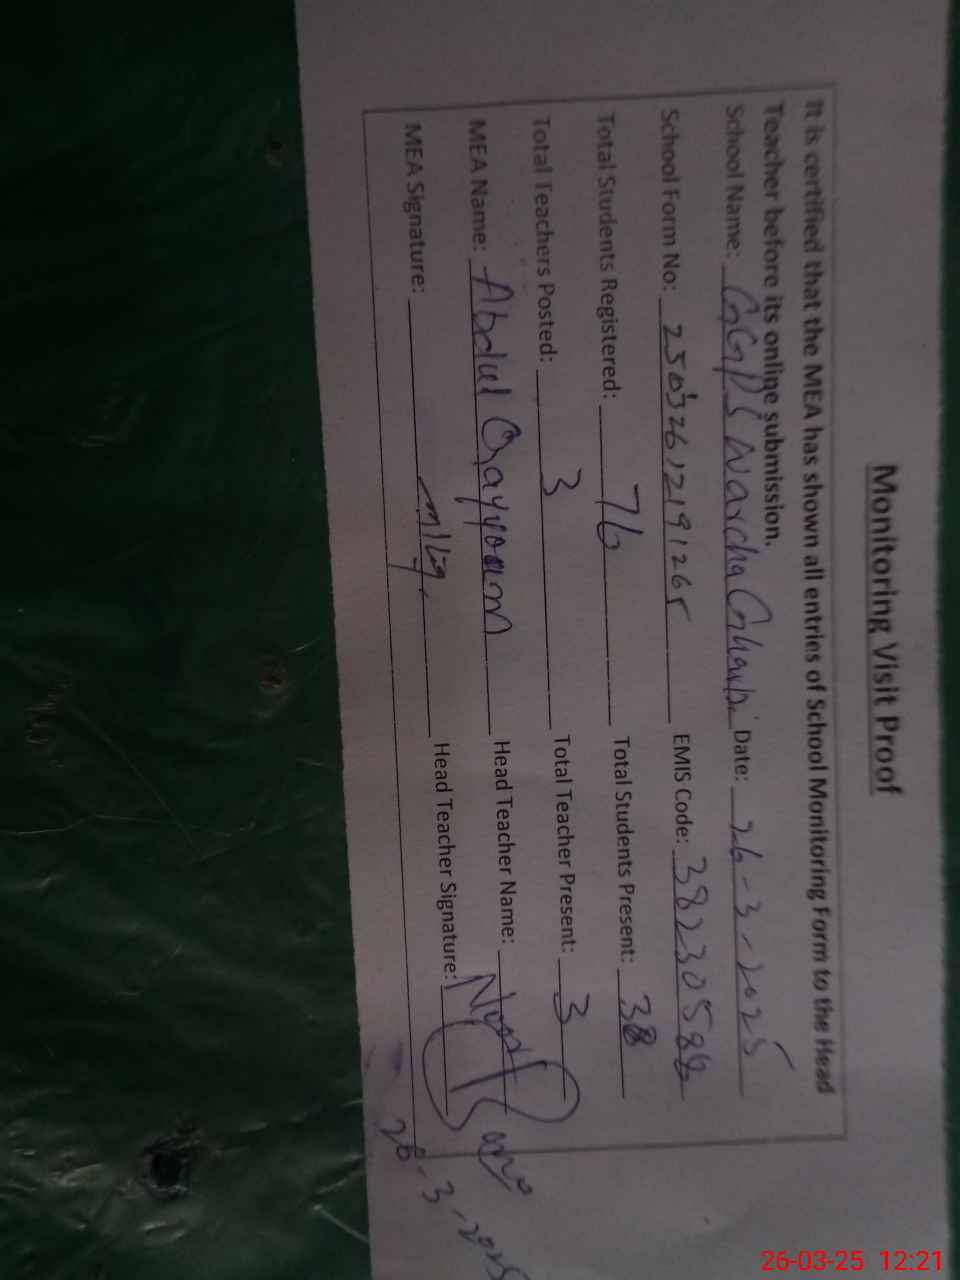 Monitoring Visit Proof
It is certified that the MEA has shown all entries of School Monitoring Form to the Head
Teacher before its online submission.
School Name: GGPS Warcha Gharbi Date: 26-3-2025
School Form No: 25032612191265 EMIS Code: 38230586
Total Students Registered: 76 Total Students Present: 38
Total Teachers Posted: 3 Total Teacher Present: 3
MEA Name: Abdul Qayyoum Head Teacher Name:
MEA Signature: Head Teacher Signature:
26-3-2025
26-03-25 12:21